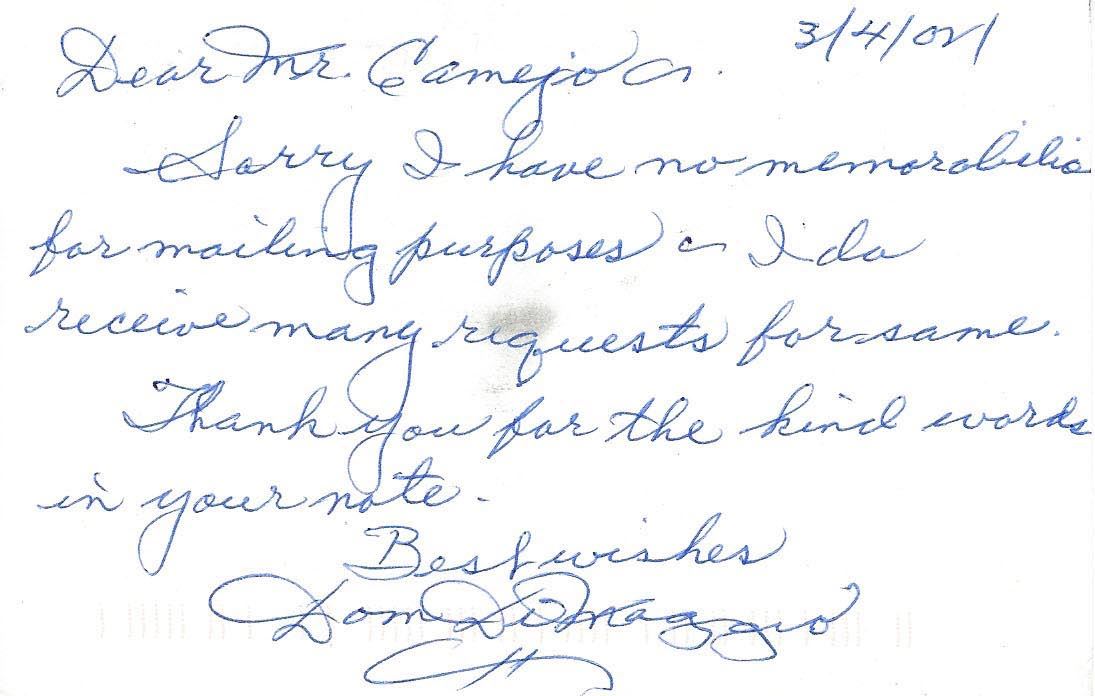 3/4/02
Dear Mr. Camejo
Sorry I have no memorabilia
for mailing purposes I do
receive many requests for same.
Thank you for the kind words
in your note.
Best wishes
Dom DiMaggio